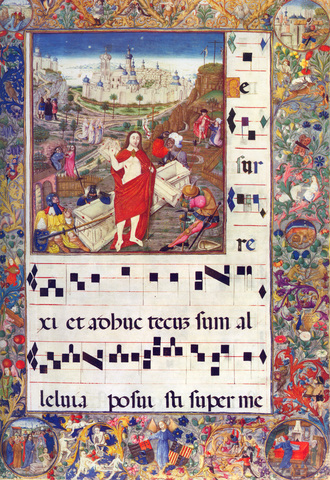 sur
re
xi et adhuc tecuz sum al
leluia posui sti super me